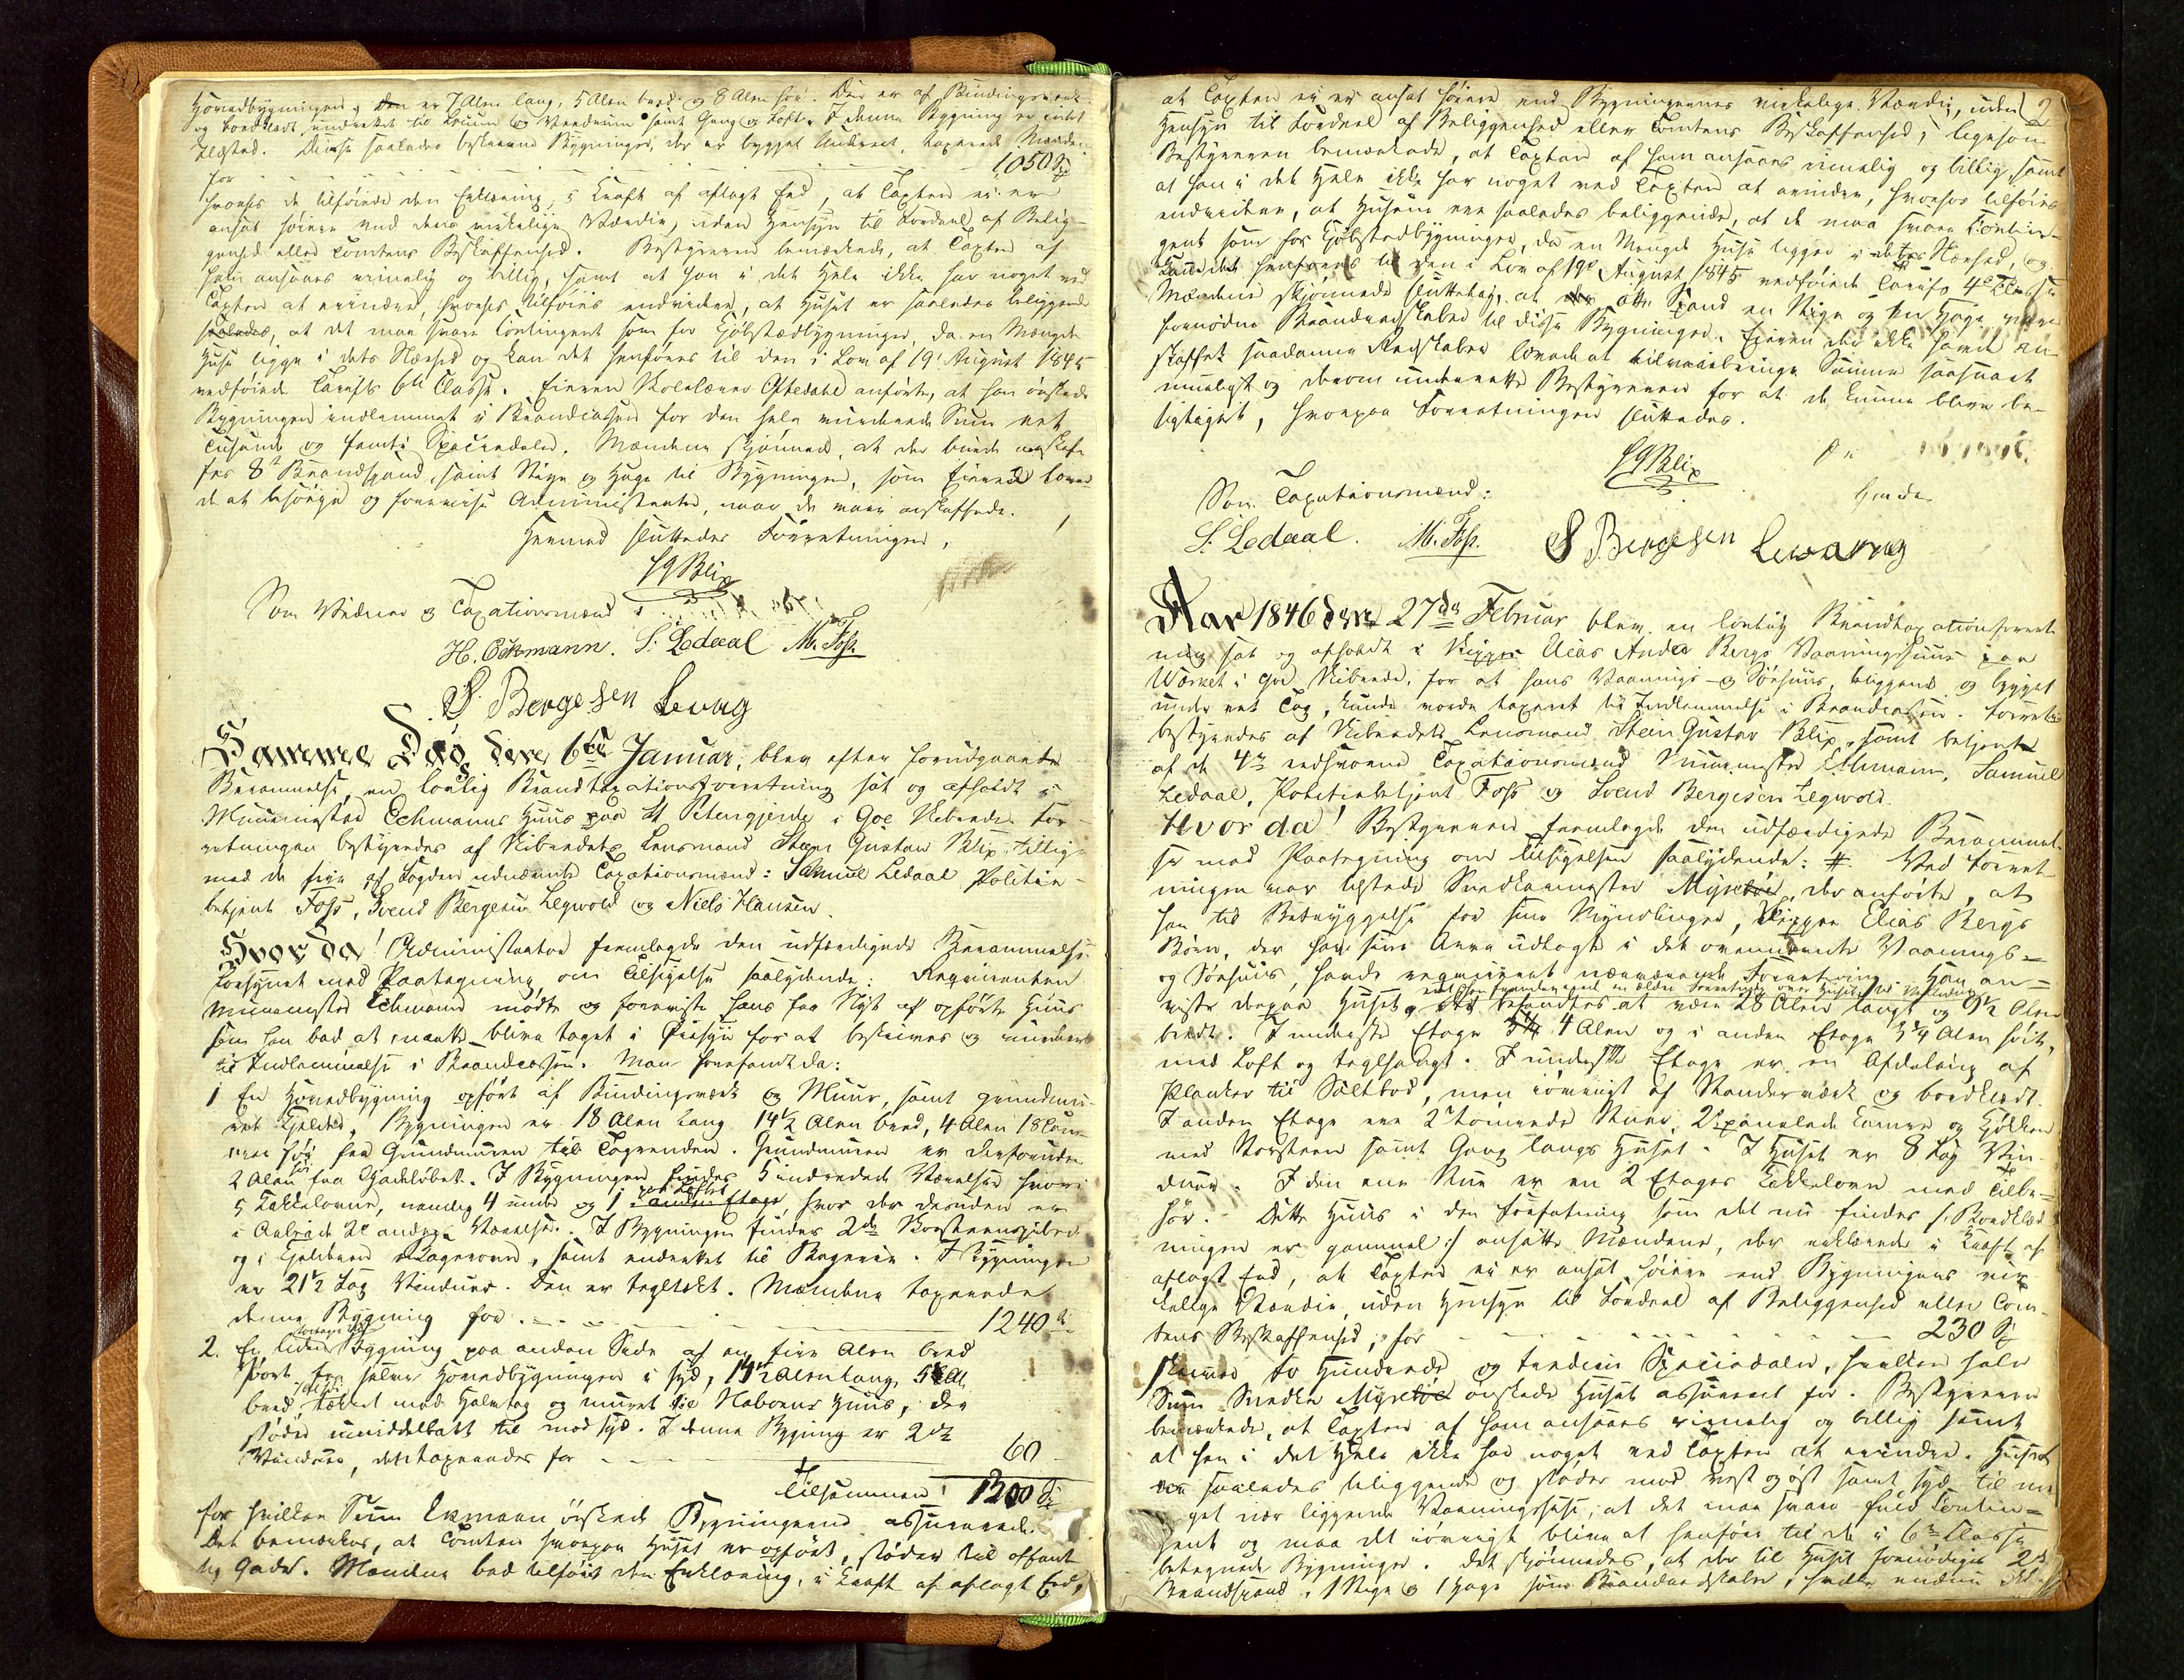 Hovedbygningen, den er 7 Alen lang, 5 Alen bred og 8 Alen høi. Den er af Bindingsværk
og bordklædt indrettet til og samt Gang og Loft. I denne Bygning er intet
Ildsted. Disse saaledes beskrevne Bygninger, der er bygget taxerede Mændene
for 1,050 Spd
hvorhos de tilføiede den Erklæring, i Kraft af aflagt Eed, at Taxten ei er
ansat høiere end dens virkelige Værdie, uden Hensyn til Fordeel af Belig-
genhed eller Tomtens Beskaffenhed. Bestyreren bemærkede, at Taxten af
ham ansaaes rimelig og billig, samt at han i det Hele ikke har noget ved
Taxten at erindre, hvorhos tilføies endvidere, at Huset er saaledes beliggende
saaledes, at det maa svare Contingent som for Kjøbstædbygninger, da en Mængde
Huse ligge i dets Nærhed og kan det henføres til den i Lov af 19 August 1845
vedføiede Tarifs 6te Classe. Eieren Skolelærer Oftedahl anførte, at han ønskede
Bygningen indlemmet i Brandcassen for den hele vurderede Sum eet
tusinde og femti Speciedaler. Mændene skjønnede, at der burde anskaf-
fes 8t Brandspand, samt Stige og Hage til Bygningen, som Eieren love-
de at besørge og forevise Administrator, naar de vare anskaffede.
Hermed sluttedes Forretningen.
SGBlix
Som Vidner og Taxationsmænd:
H. Eckmann. S. Ledaal M. Foss.
S. Bergesen Levag
Samme Dag, den 6te Januar, blev efter forudgaaende
Berammelse en lovlig Brandtaxationsforretning sat og afholdt i
Muurmester Echmanns Huus paa St Petersgjerde i Goe Ribrede. For-
retningen bestyredes af Ribredets Lensmand Steen Gustav Blix tillige
med de fire af Fogden udnævnte Taxationsmænd: Samuel Ledaal Politie-
betjent Foss, Svend Bergesen Legvold og Niels Hansen.
Hvor da! Administrator fremlagde den udfærdigede Berammelse
forsynet med Paategning om Tilsigelse saalydende: Requirenten
Muurmester Echmann mødte og foreviste hans fra Nyt af opførte Huus
som han bad at maatte blive taget i Øiesyn for at beskrives og vurderes
til Indlemmelse i Brandcassen. Man forefandt da:
1 En Hovedbygning opført af Bindingsværk og Muur, samt grundmu-
ret Kjelder. Bygningen er 18 Alen lang 14½ Alen bred, 4 Alen 18 Tom-
mer høi fra Grundmuren til Tagrenden. Grundmuren er desforuden
2 Alen høi fra Gadeløbet. I Bygningen findes 5 indredede Værelser hvori
5 Kakkelovne, nemlig 4 nede og 1 paa Loftet anden Etage, hvor der desuden er
i Qvist 2de andre Værelser. I Bygningen findes 2de Skorsteenspiber
og i Kjelderen Bagerovn, samt indrettet til Bagerie. I Bygningen
er 21½ Fag Vinduer. Den er tegltækt. Mændene taxerede
denne Bygning for 1240 "
2. En liden Bygning paa anden Side af en fire Alen bred
Port fra selve Hovedbygningen i Syd, 14½ Alen lang 5 Al
bred, tækket med Halvtag og muret til Naboens Huus, der
støder umiddelbart til mod Syd. I denne Bygning er 2de
Vinduer, dette taxeredes for 60
Tilsammen 1300 Sp
for hvilken Sum Ekmann ønskede Bygningerne assurerede.
Det bemærkes, at Tomten hvorpaa Huset er opført, støder til offent-
lig Gade. Mændene bad tilføiet den Erklæring, i Kraft af aflagt Eed,
2
at Taxten ei er ansat høiere end Bygningernes virkelige Værdie, uden
Hensyn til Fordeel af Beliggenhed eller Tomtens Beskaffenhed; ligesom
Bestyreren bemærkede, at Taxten af ham ansaaes rimelig og billig, samt
at han i det Hele ikke har noget ved Taxten at erindre, hvorhos tilføies
endvidere, at Husene ere saaledes beliggende, at de maa svare Contin-
gent som for Kjøbstædbygninger, da en Mængde Huse ligger i dets Nærhed, og
kan det henføres til den i Lov af 19de August 1845 vedføiede Tarifs 4de Classe
Mændene skjønnede sluttelig, at otte Spand en Stige og en Hage vare
fornødne Brandredskaber til disse Bygninger. Eieren der ikke havde an-
skaffet saadanne Redskaber lovede at tilveiebringe Samme saasnart
mueligt og derom underrette Bestyreren for at de kunne blive be-
sigtiget, hvorpaa Forretningen sluttedes.
SGBlix
Som Taxationsmænd:
S. Ledaal. M. Foss. S Bergesen Levarng
Aar 1846 den 27de Februar blev en lovlig Brandtaxationsforret-
ning sat og afholdt i Skipper Elias Andr Bergs Vaaningshuus paa
Værket i Goe Ribrede, for at hans Vaanings- og Søehuus, beliggende og bygget
under eet Tag, kunde vorde taxeret til Indlemmelse i Brandcassen. Forretn.
bestyredes af Ribredets Lensmand Steen Gustav Blix, samt betjentes
af de 4re edsvorne Taxationsmænd Muurmester Echmann, Samuel
Ledaal, Politiebetjent Foss og Svend Bergesen Legvold.
Hvor da! Bestyreren fremlagde den udfærdigede Berammel-
se med Paategning om Tilsigelsen saalydende: # Ved Forret-
ningen var tilstede Snedkermester Myretøe, der anførte, at
han til Betryggelse for sine Myndlinger, Skipper Elias Bergs
Børn, der have sine Arve udlagte i det ovennævnte Vaanings-
og Søehuus, havde requireret nærværende Forretning. Han an-
viste derpaa Huset, det befandtes at være 28 Alen langt og 9½ Alen
bredt. I underste Etage 4 Alen og i anden Etage 3¼ Alen høit,
med Loft og teglhængt. I underste Etage er en Afdeling af
Planker til Saltbod, men iøvrigt af Standerværk og bordklædt.
I anden Etage ere 2 tømrede Stuer, 2 panelede Kamre og Kjøkken
med Skorsteen samt Gang langs Huset. I Huset er 8 Fag Vin-
duer. I den ene Stue er en 2 Etages Kakkelovn med Tilbe-
hør. Dette Huus i den Forfatning som det nu findes /: Bordklæd-
ningen er gammel :/ ansatte Mændene, der erklærede i Kraft af
aflagt Eed, at Taxten ei er ansat høiere end Bygningens vir-
kelige Værdie, uden Hensyn til Fordeel af Beliggenhed eller Tom-
tens Beskaffenhed, for 230 Sp
skriver to Hundrede og tredive Speciedaler, hvilken hele
Sum Snedker Myretøe ønskede Huset assureret for. Bestyreren
bemærkede, at Taxten af ham ansaaes rimelig og billig samt
at han i det Hele ikke har noget ved Taxten at erindre. Huset
er saaledes beliggende og støder mod vest og øst samt syd til me-
get nær liggende Vaaningshuse, at det maa svare fuld Contin-
gent og maa det iøvrigt blive at henføre til de i 6te Classe
betegnede Bygninger. Det skjønnedes, at der til Huset fornødiges 2de
Brandspand, 1 Stige og 1 Hage som Brandredskaber, hvilke endnu